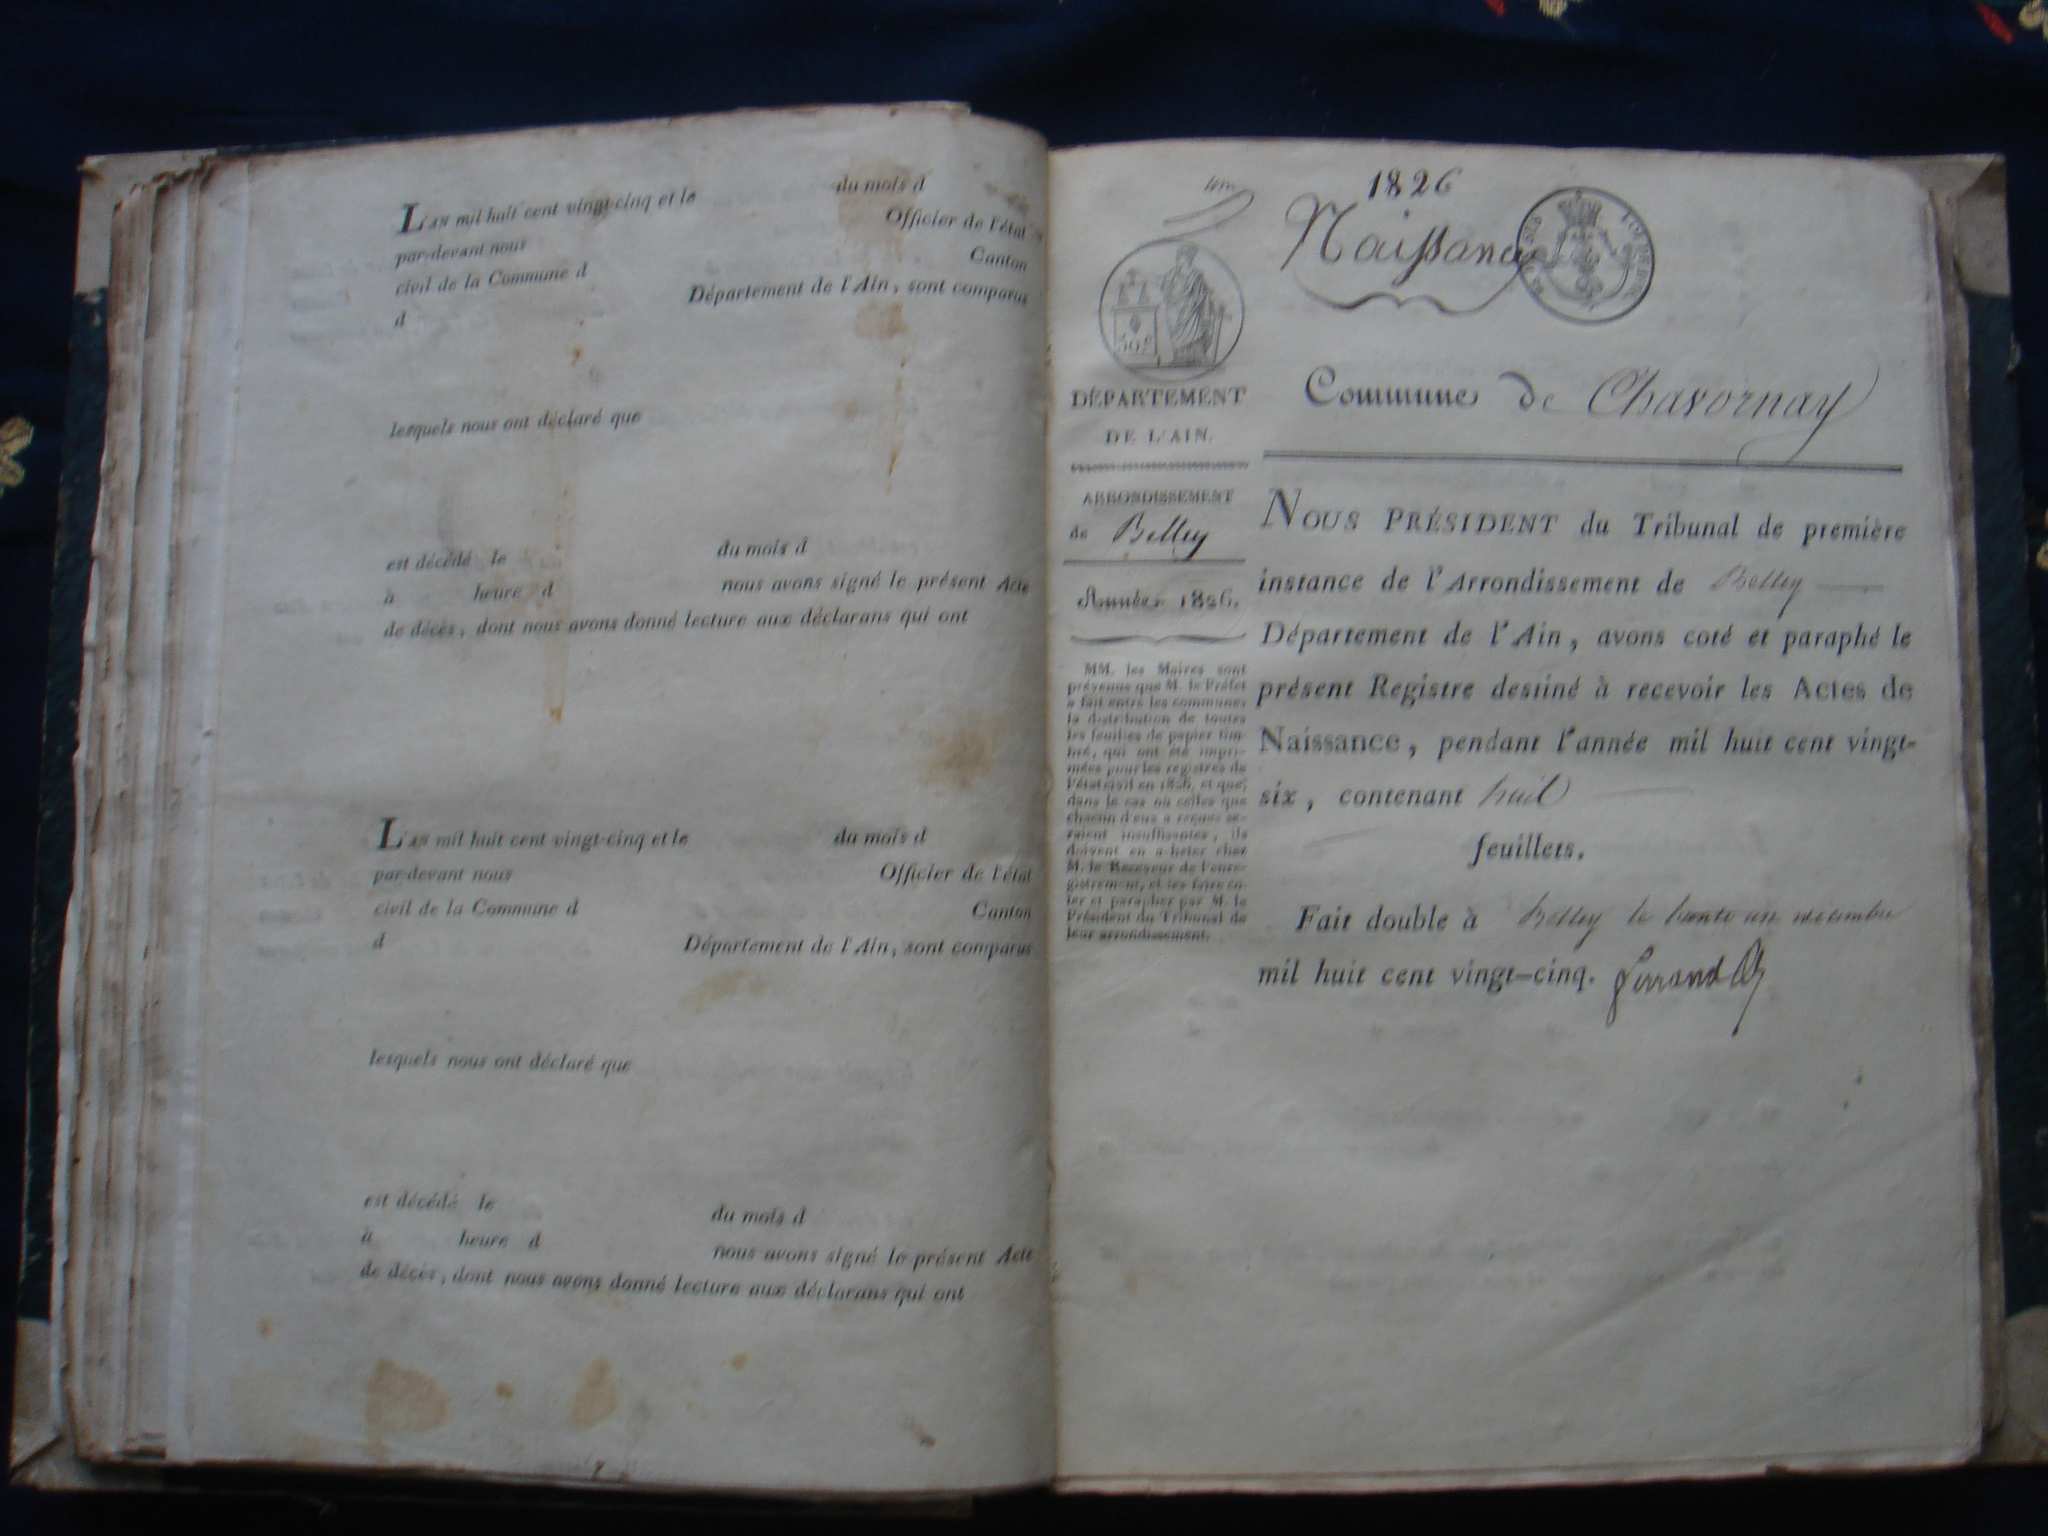 L'AN mil huit cent vingt-cinq et le du mois d
par-devant nous Officier de l'état
civil de la Commune d Canton
d Département de l'Ain, sont comparus
lesquels nous ont déclaré que
est décédé le du mois d
à heure d nous avons signé le présent Acte
de décès, dont nous avons donné lecture aux déclarans qui ont
L'AN mil huit cent vingt-cinq et le du mois d
par-devant nous Officier de l'état
civil de la Commune d Canton
d Département de l'Ain, sont comparus
lesquels nous ont déclaré que
est décédé le du mois d
à heure d nous avons signé le présent Acte
de décès, dont nous avons donné lecture aux déclarans qui ont
1826
Naissance
DÉPARTEMENT
DE L'AIN.
ARRONDISSEMENT
de Belley
Année 1826.
MM. les Maires sont
prévenus que M. le Préfet
a fait entre les communes
la distribution de toutes
les feuilles de papier tim-
bré, qui ont été impri-
mées pour les registres de
l'état civil en 1826, et que,
dans le cas où celles que
chacun d'eux a reçues se-
raient insuffisantes, ils
doivent en acheter chez
M. le Receveur de l'enre-
gistrement, et les faire co-
ter et parapher par M. le
Président du Tribunal de
leur arrondissement.
Commune de Chavornay
NOUS PRÉSIDENT du Tribunal de première
instance de l'Arrondissement de Belley
Département de l'Ain, avons coté et paraphé le
présent Registre destiné à recevoir les Actes de
Naissance, pendant l'année mil huit cent vingt-
six, contenant huit
feuillets.
Fait double à Belley le trente un décembre
mil huit cent vingt-cinq.